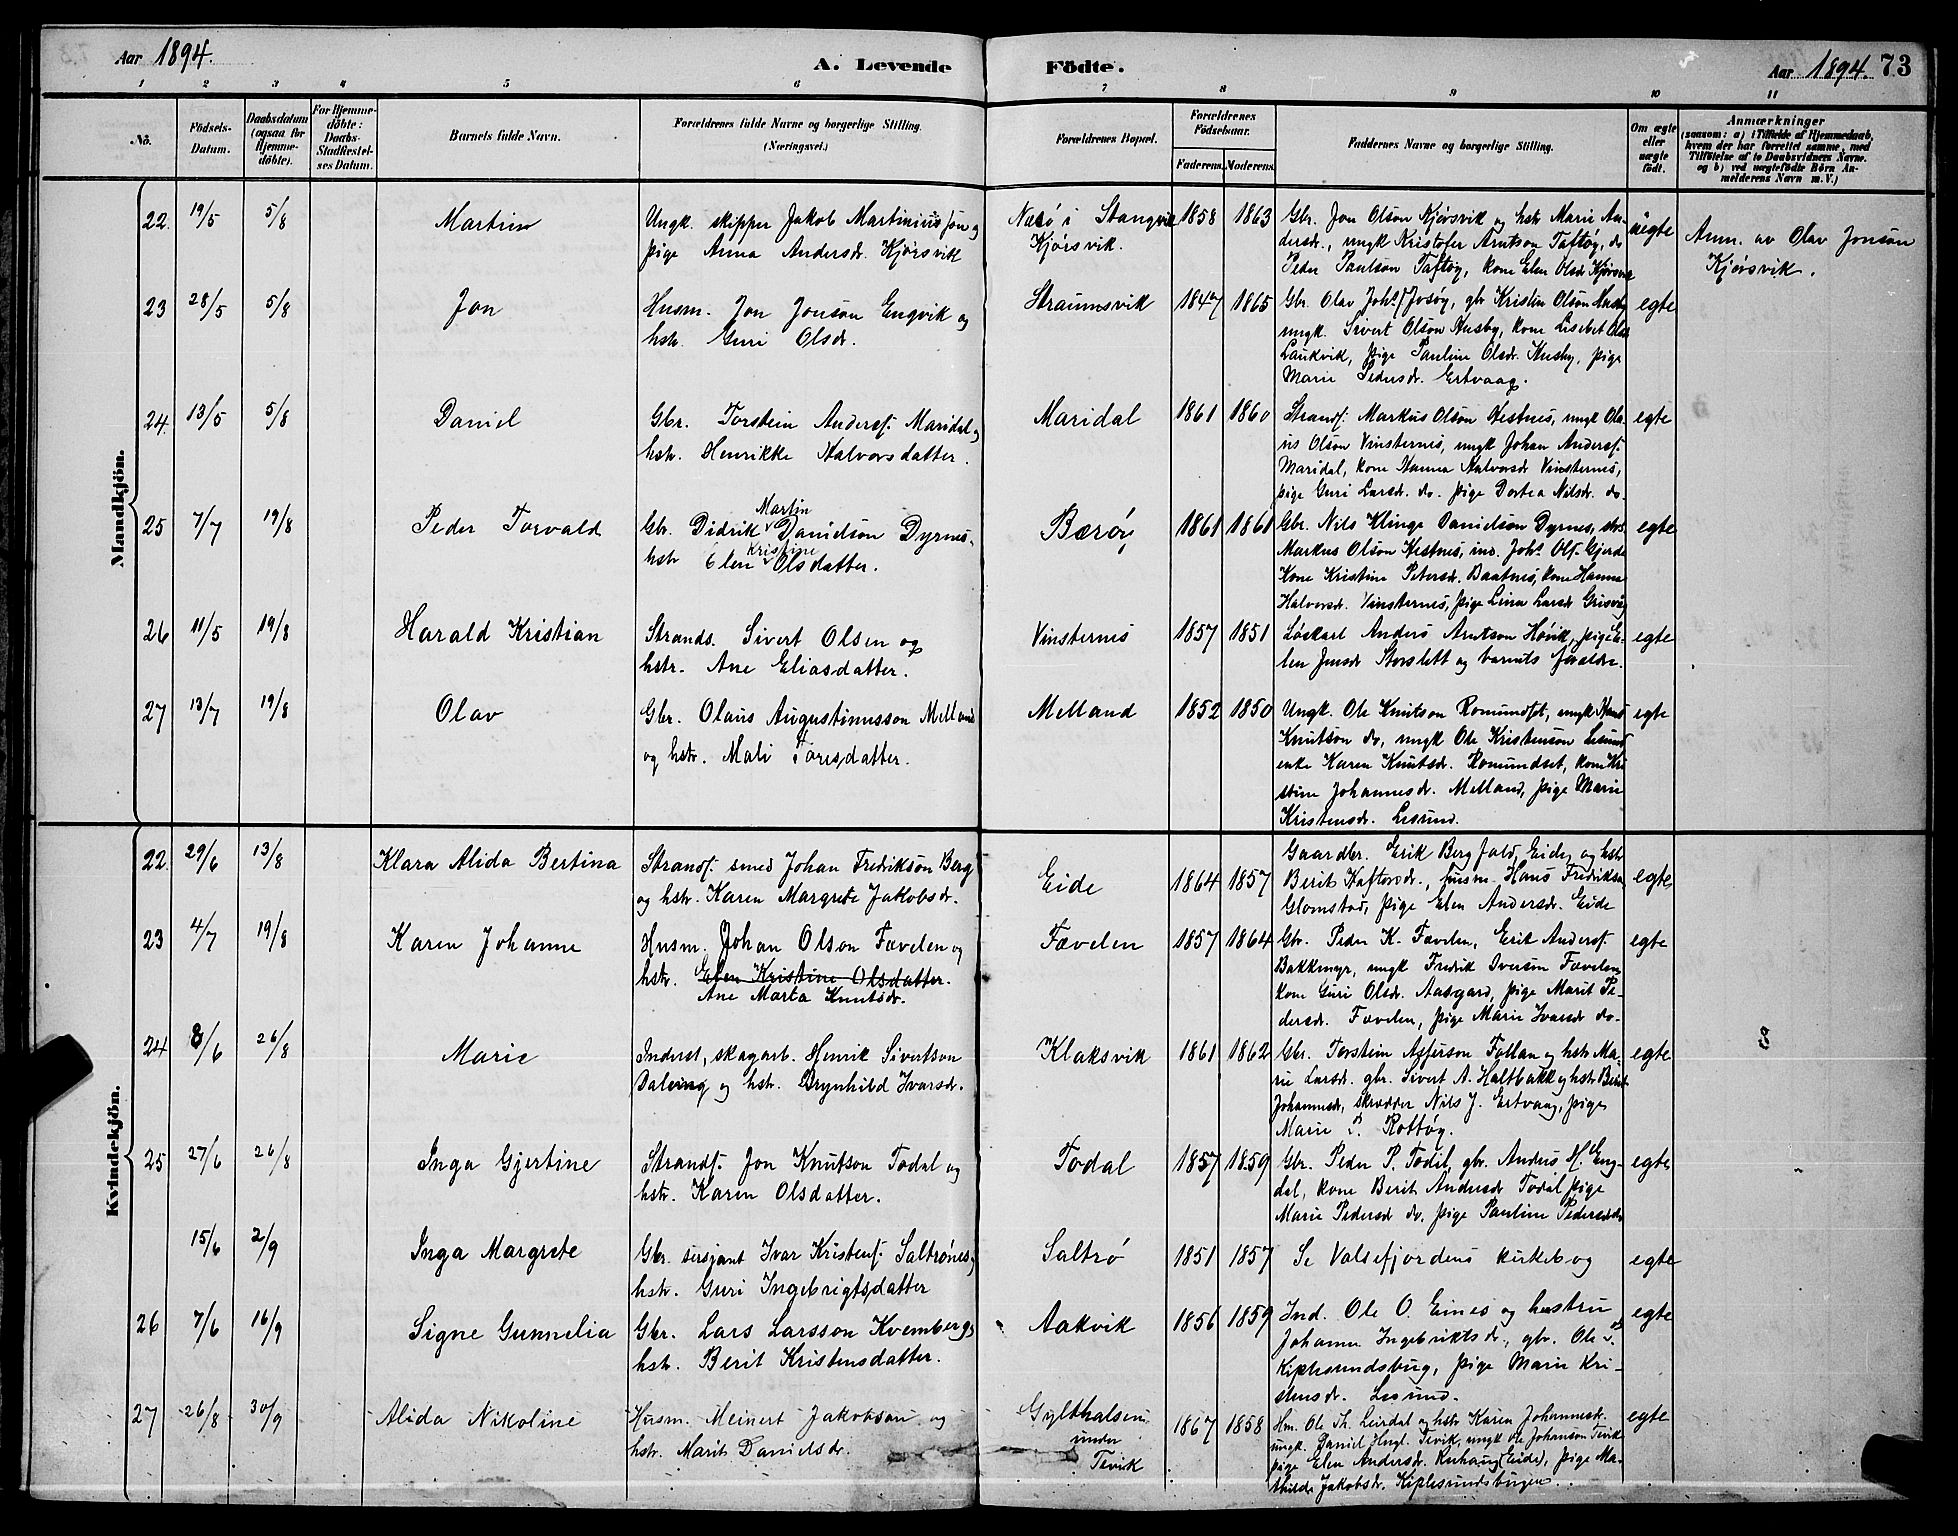 Aar 1894.
A. Levende Födte.
Aar 1894. 73
1 2 3 4 5 6 7 8 9 10 11
No.
Födsels-Datum.
Daabsdatum (ogsaa for Hjemme-döbte).
For Hjemme-döbte: Daabs-Stadfæstelses Datum.
Barnets fulde Navn.
Forældrenes fulde Navne og borgerlige Stilling.
(Næringsvei.)
Forældrenes Bopæl.
Forældrenes Födselsaar.
Faderens. Moderens.
Faddernes Navne og borgerlige Stilling.
Om ægte eller uægte födt.
Anmærkninger
(saasom: a) i Tilfælde af Hjemmedaab, hvem der har forrettet samme, med Tilföielse af to Daabsvidners Navne, og b) ved uægtefödte Börn Anmelderens Navn m. V.)
Mandkjön.
22. 19/5 5/8 Martin
Ungk. skipper Jakob Martinius Jon og
pige Anna Andersdr. Kjörsvik
Nærö i Stangvik
Kjörsvik.
1858 1863
Gbr. Jon Olson Kjörsvik og hstr Marie An-
dersdr., ungk Kristofer Arntson Taftöy, do
Peder Paulson Taftöy, kone Elen Olsdr Kjörsvik
uægte
Anm. av Olav Jonson
Kjörsvik.
23 28/5 5/8 Jon
Husm. Jon Jonson Engvik og
hstr. Guri Olsdr.
Straumsvik 1847 1865
Gbr. Olav Johs. Josöy, gbr Kristen Olson Husby
ungk. Sivert Olson Husby, kone Lisebet Olsdr
Laukvik, pige Pauline Olsdr. Husby, pige
Marie Pedersdr. Ertvaag.
egte
24. 13/5 5/8 Daniel
Gbr. Torstein Andersf. Maridal og
hstr. Henrikke Halvorsdatter.
Maridal 1861 1860
Strandf. Markus Olson Kestnes, ungk Ola-
us Olson Vinsternes, ungk Johan Andersf.
Maridal, kone Hanna Halvorsdr Vinsternes,
pige Guri Larsdr. do. pige Dortea Nilsdr. do.
egte
25 7/7 19/8 Peder Torvald
Martin
Gbr. Didrik Danielson Dyrnes,
Kristine
hstr Elen Olsdatter.
Bæröy 1861 1861
Gbr. Nils Klinge Danielson Dyrnes, strs.
Markus Olson Kestnes, ind. Johs. Olf. Gjerde
Kone Kristine Petersdr. Baatnes, kone Hanna
Halvorsdr. Vinsternes, pige Lina Larsdr Grisvåg
egte
26 11/5 19/8 Harald Kristian
Strands. Sivert Olsen og
hstr. Ane Eliasdatter.
Vinsternes 1857 1851
Löskarl Anders Arntson Hövik, pige E-
len Jensdr Storslett og barnets foreldre.
egte
27 13/7 19/8 Olav
Gbr. Olaus Augustinusson Melland
og hstr. Mali Toresdatter.
Melland 1852 1850
Ungk. Ole Knutson Romundset, ungk Knut
Knutson do, ungk Ole Kristenson Lesund
enke Karen Knutsdr. Romundset, kone Kri
stine Johannesdr. Melland, pige Marie
Kristensdr. Lesund.
egte
Kvindekjön.
22. 29/6 13/8 Klara Alida Bertina
Strandf. smed Johan Fredrikson Berg
og hstr. Karen Margrete Jakobsdr.
Eide 1864 1857
Gaardbr. Erik Bergfald, Eide, og hstr
Berit Haftorsdr., husm. Hans Fredrikson
Glomstad, pige Elen Andersdr. Eide
egte
23 4/7 19/8 Karen Johanne
Husm. Johan Olson Fævelen og
hstr. Elen Kristine Olsdatter.
Ane Marta Knutsdr.
Fævelen 1857 1864
Gbr. Peder K. Fævelen, Erik Andersf.
Bakkmyr, ungk Fredrik Iverson Fævelen,
kone Guri Olsdr. Aasgard, pige Marit Pe-
dersdr. Fævelen, pige Marie Ivarsdr do.
egte
24 8/6 26/8 Marie
Inderst, skogarb. Henrik Sivertson
Dalening og hstr. Brynhild Ivarsdr.
Klaksvik 1861 1862
Gbr. Torstein Asferson Follan og hstr Ma-
rie Larsdr. gbr. Sivert A. Haltbakk og hstr Berit
Johannesdr, skrædder Nils J. Ertvaag, pige
Marie P. Rottöy.
egte
25 27/6 26/8 Inga Gjertine
Strandf. Jon Knutson Todal og
hstr. Karen Olsdatter.
Todal 1857 1859
Gbr. Peder P. Todal, gbr. Anders H. Eng-
dal, kone Berit Andersdr Todal, pige
Marie Pedersdr do, pige Pauline Pedersdr do
egte
15/6 2/9 Inga Margrete
Gbr. sersjant Ivar Kristenf. Saltrönes,
hstr. Guri Ingebrigtsdatter
Saltrö 1851 1857
Se Valsefjordens kirkebog
egte
26 7/6 16/9 Signe Gunnelia
Gbr. Lars Larsson Kvemberg,
hstr. Berit Kristensdatter.
Aakvik 1856 1859
Ind. Ole O. Eines og hustru
Johanna Ingebriktsdr, gbr. Ole P.
Kiplesundsbug, pige Marie Kri-
stensdr. Lesund.
egte
27 26/8 30/9 Alida Nikoline
Husm. Meinert Jakobson og
hstr. Marit Danielsdr.
Gylthalsen
under
Tevik
1867 1858
Hm. Ole Th. Leirdal og hstr Karen Johannesdr.
ungk. Daniel Hugl. Tevik, ungk Ole Johanson Tevik
pige Elen Andersdr. Ruhaug (Eide), pige Ma-
thilde Jakobsdr. Kiplesundsbugen.
egte